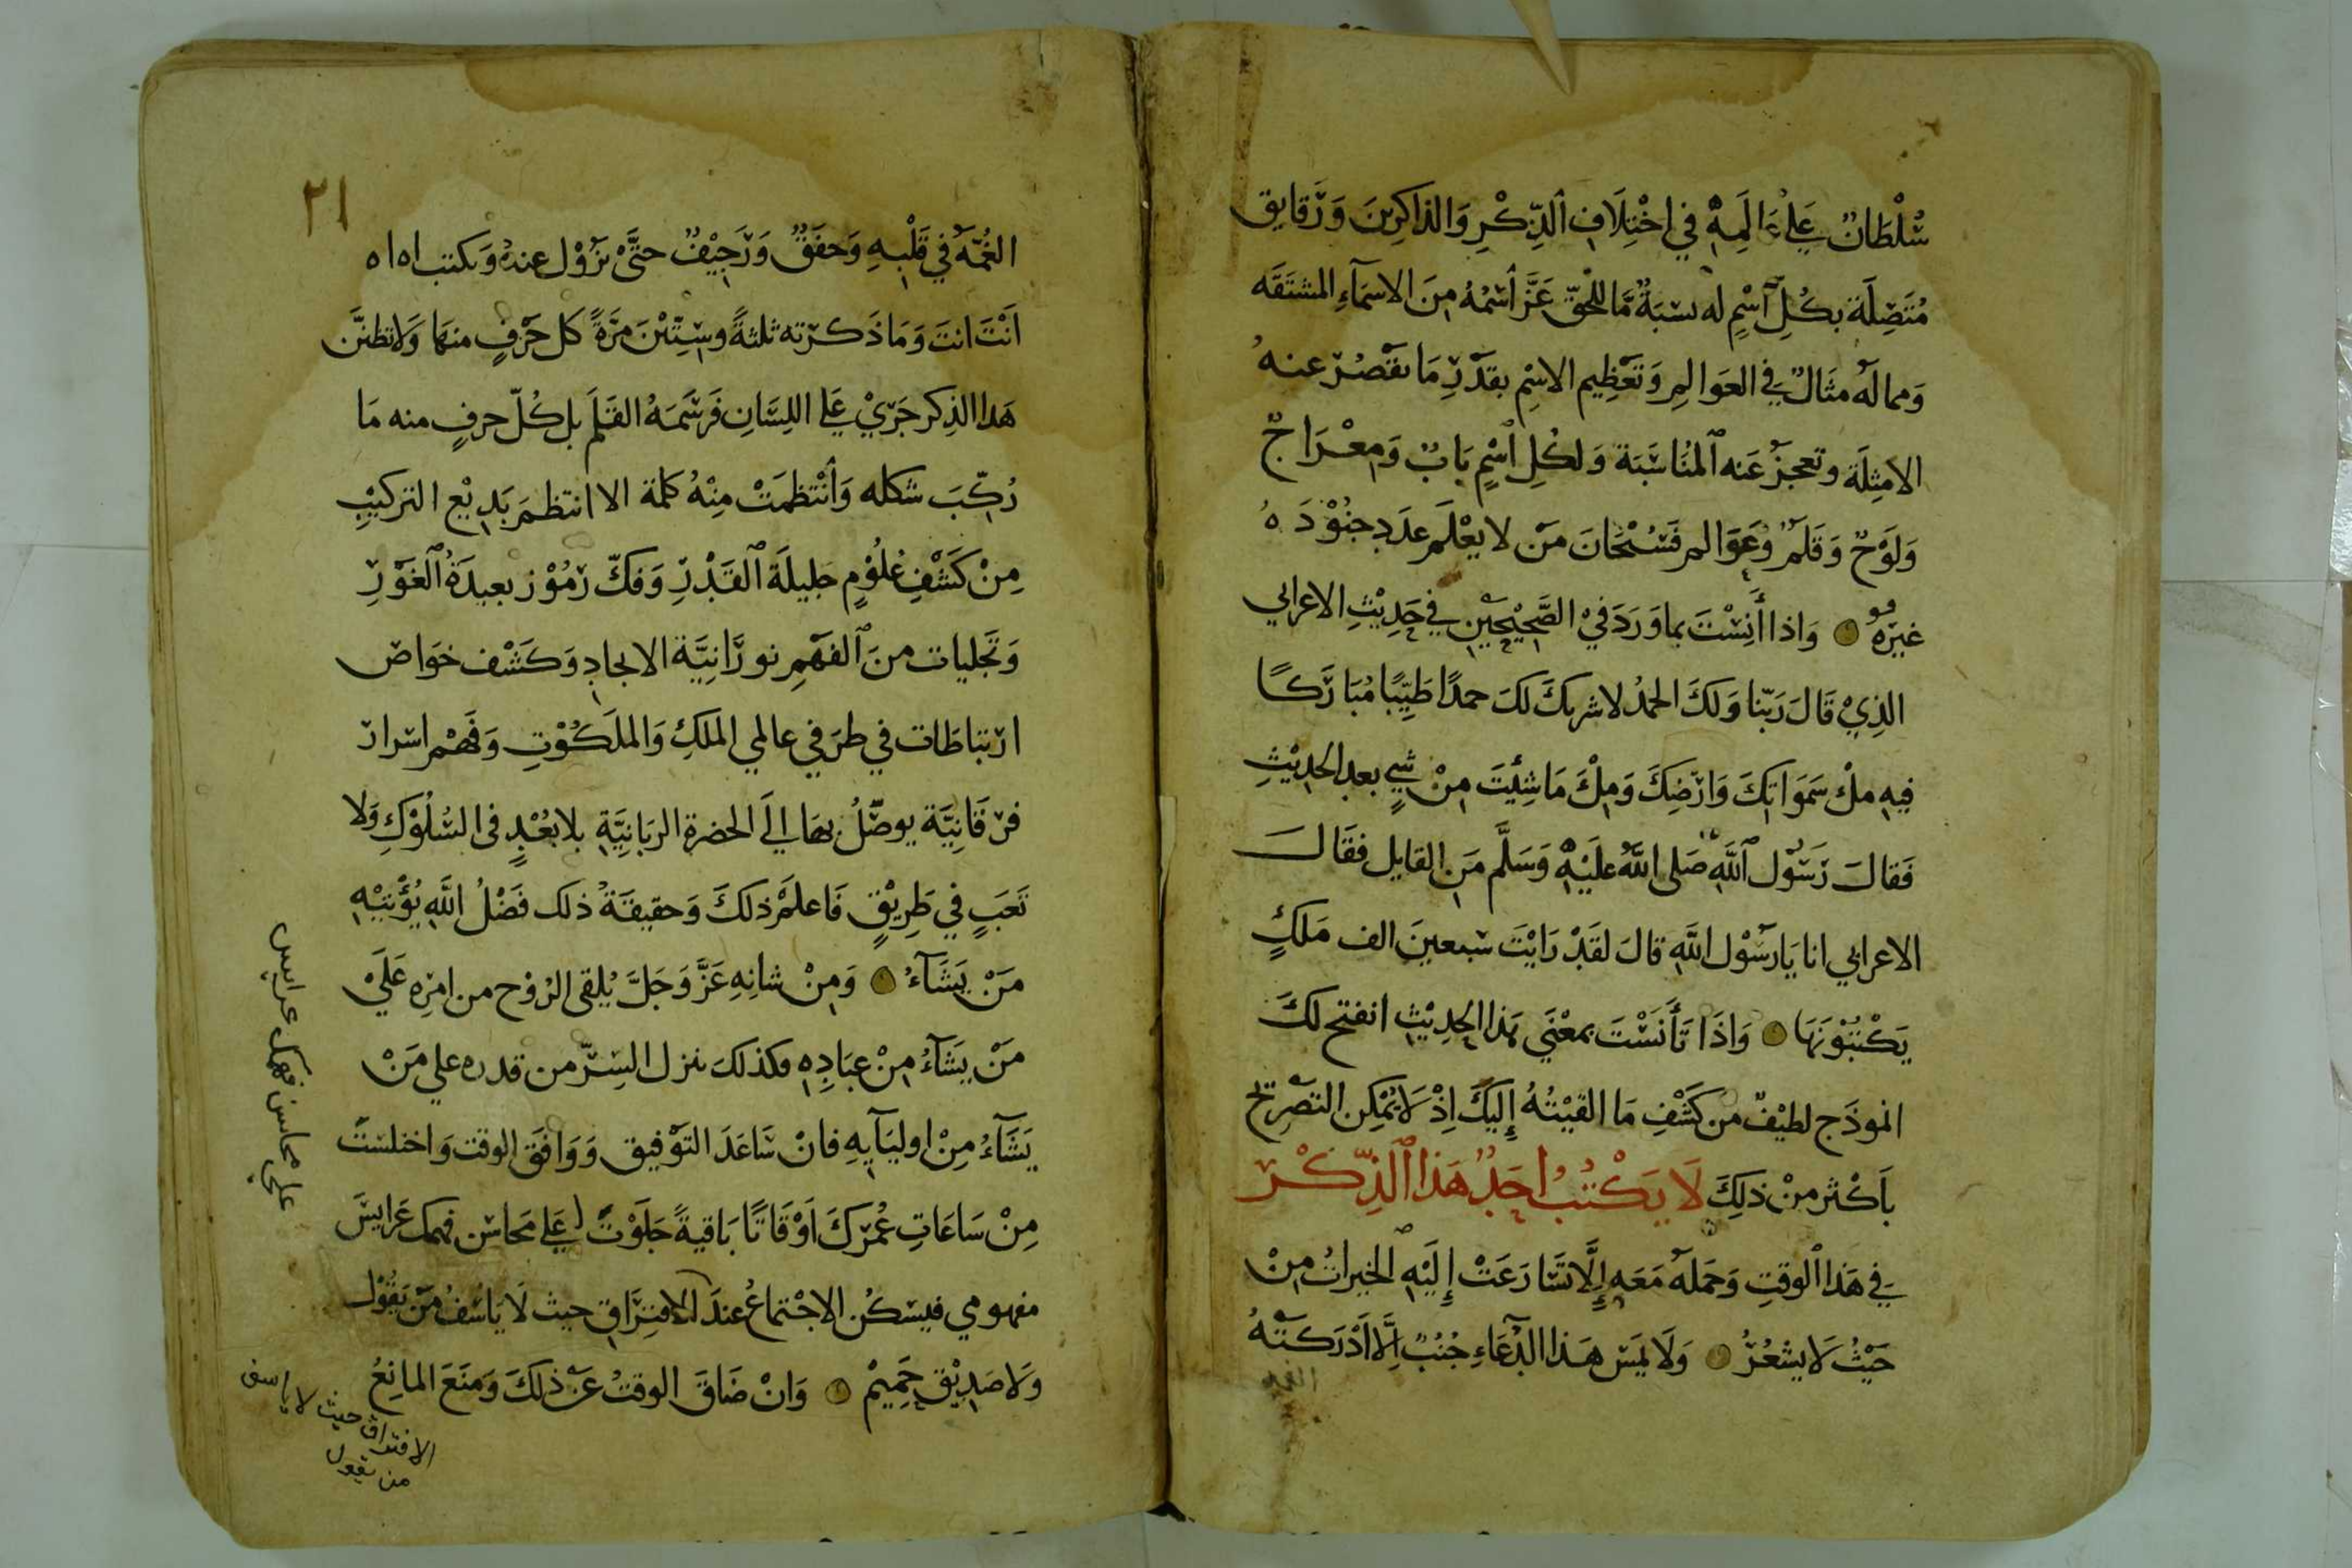 سُلْطَانٌ عَلَى عَالَمِهِ في اخْتِلَافِ الذِّكْرِ وَالذاكِرِينَ وَرَقايق
مُتَصِلَة بكُلِّ اسْمٍ له نسْبَةٌ مَّا للحَقّ عَزَّ اسْمُهُ مِنَ الاسمآءِ المشتقَه
وَمماله مثَالٌ في العَوالمِ وَتَعْظِيم الاسْمِ بقدْرِ مَا يقْصُرْ عنهُ
الامْثِلَة وتعجزُ عَنه المُنَاسَبَة وَلكُلِ اسْمٍ بَابٌ وَمِعْرَاجٌ
وَلَوْحٌ وَقَلَمٌ وَعَوَالم فَسُبْحَانَ مَن لا يعْلَم عدَد جنُوْدَهُ
غيرُهُ وَاذا أنِسْتَ بماوَرَدَ فيْ الصَّحِيْحَيْنِ في حَدِيْثِ الاعرابي
الذِيْ قَالَ رَبّنا وَلكَ الحمدُ لاشريكَ لكَ حمدًا طَيِّبًا مُبَارَكًا
فيهِ ملْ سَمَوَاتكَ وَارْضِكَ وَمِلْ مَا شِئْتَ مِنْ شيٍ بعد الحديْثِ
فَقالَ رَسُوْل اللَّهِ صَلى اللَّهُ علَيْهِ وَسَلَّم مَنِ القايل فقَالَ
الاعرابي انا يَا رسُوْل اللَّهِ قالَ لقَدْ رَايْتَ سبعينَ الف مَلكٍ
يَكْتبُوْنَهَا وَاذَا تَأَنَسْتَ بمعْنَي هَذا الحدِيْثِ انفتح لكَ
انموذَج لطيْفٌ من كَشْفِ مَا القيْتُهُ إِليكَ اِذْ لَا يُمْكِن التصْريح
بَاكْثر منْ ذلِكَ لَا يَكْتُبُ احَدٌ هَذا الذِّكْرْ
في هَذا الوقتِ وَحَملهُ مَعَه إِلَّا تَسَارَعَتْ إِلَيْهِ الخيراتُ مِنْ
حَيْثُ لَا يشعُرُ وَلَا يمَس هَذا الدُّعَاءِ جُنُبٌ اِلَّا اَدْرَكَتْهُ
الغمه
٢١
الغُمَّه في قَلْبِهِ وَخفَقٌ وَرَجِيْفٌ حتَّى يزُوْل عندهُ وَيكتب اه اه
انْتَ انتَ وَمَا ذَكرْته ثلثةً وسِتِّيْنَ مرَّةً كل حَرْفٍ منهَا وَلا تظنَّن
هَذا الذِكر جَرَيْ عَلي اللسَّانِ فَرَسَمَهُ القَلَم بل كُلّ حرفٍ منه مَا
رُكِّبَ شكله وَانْتظمَتْ مِنْهُ كلمة الا انتظمَ بَدِيْع التركيْبِ
مِنْ كَشْفِ عُلُوْمٍ جَليلَة القَدْرِ وَفكّ رَمُوْز بعيدَةُ الغَوْرِ
وَتَجليات منَ الفَهْمِ نورَانِيَّة الايجادِ وَكَشْف خوَاص
ارْتباطَات في طرَفي عالمي المَلكِ وَالملكُوْتِ وَفَهْم اسْرارْ
فرْقَانِيَّة يوصَّلُ بهَا الَى الحضرة الربَانِيَّةِ بلا بعُدٍ في السُّلُوْكِ وَلا
تَعَبٍ في طَرِيْقٍ فَاعلمْ ذلكَ وَحقيقةُ ذلك فَضْلُ اللَّهِ يُؤْتِيْهِ
مَنْ يَشَآءُ وَمِنْ شانِهِ عَزَّ وَجَلَّ يُلقى الرُوْح من امْرِه عَلَيْ
مَنْ يَشَآءُ مِنْ عبَادِهِ وكذلكَ ينزل السِرّ من قدره علي مَنْ
يَشَآءُ مِنْ اوليَآيهِ فانْ سَاعَدَ التوْفيق وَوَافَق الوقت وَاختلستَ
مِنْ سَاعَاتِ عُمْرِكَ اَوْقَاتًا بَاقيةً جَلَوْتُ عَلي مَحَاسن فهمك عَرايسَ
مفهومي فيسكُن الاجْتماعُ عندَ الافتِرَاقِ حيث لَا يَاسَفُ مَنْ يَقُوْل
وَلَا صَدِيْقٍ حَمِيْمْ وَانْ ضَاقَ الوقتْ عَنْ ذلكَ وَمنَعَ المانِعُ
علي محاسن فهمك عرايس
الافتراق حيث لا ياسف
من يقول